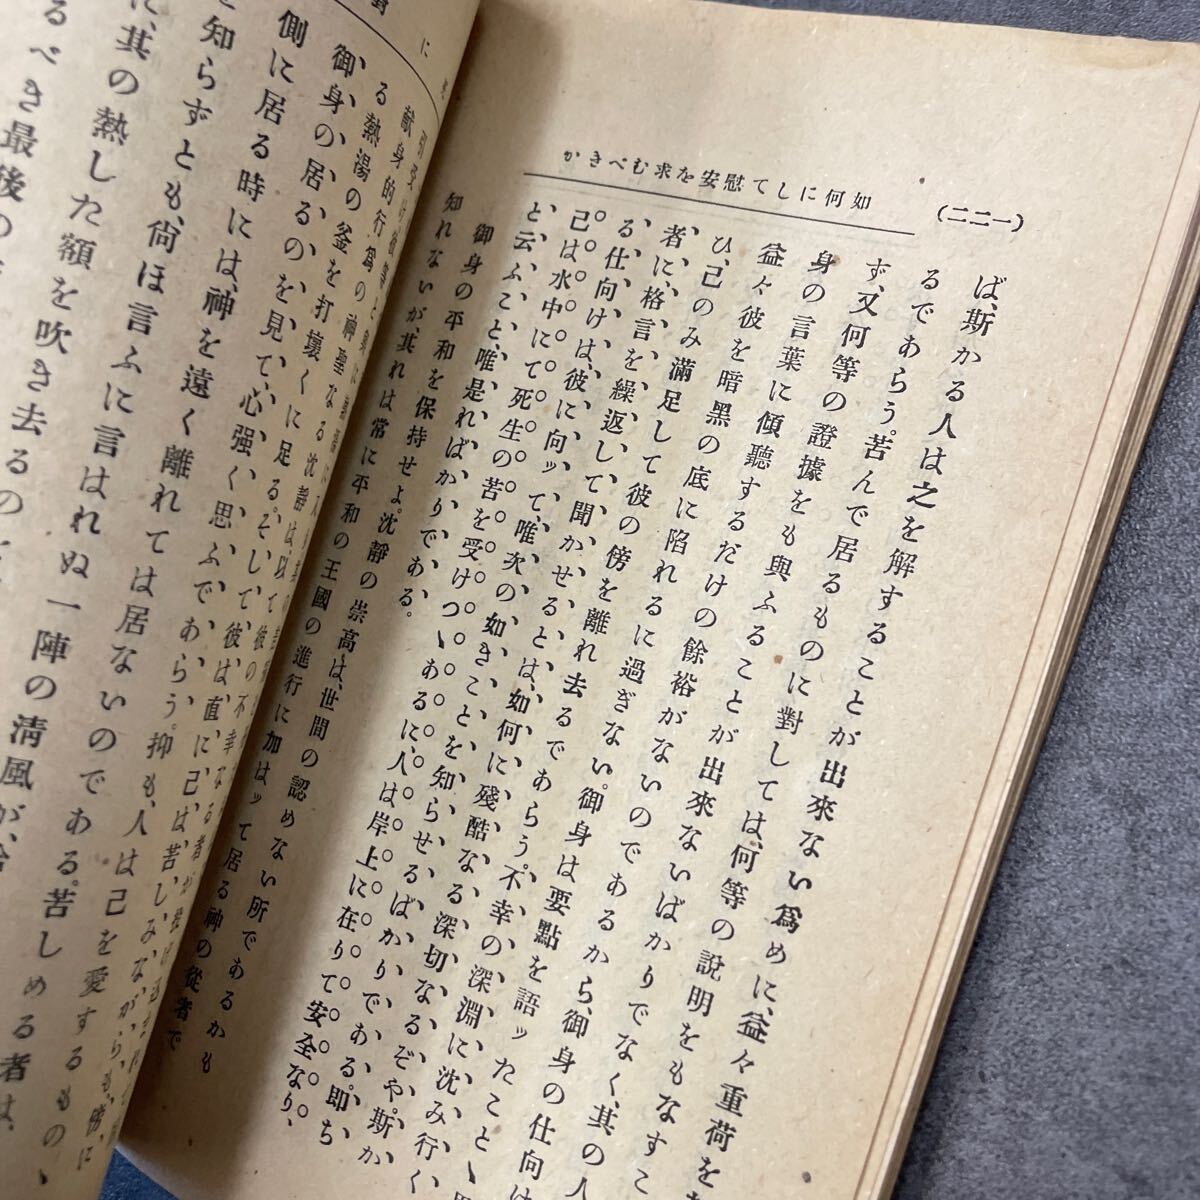 (一二二)
如何にして慰安を求むべきか
ば、斯かる人は之を解することが出來ない爲めに、益々重荷を
るであらう。苦んで居るものに對しては、何等の說明をもなすこ
ず、又何等の證據をも與ふることが出來ないばかりでなく、其の人
身の言葉に傾聽するだけの餘裕がないのであるから、御身の仕向
益々彼を暗黑の底に陷れるに過ぎない。御身は要點を語ッたことゝ
ひ、己のみ滿足して彼の傍を離れ去るであらう。不幸の深淵に沈み行く
者に、格言を繰返して聞かせるとは、如何に殘酷なる深切なるぞや。斯か
る仕向けは、彼に向ッて、唯次の如きことを知らせるばかりである。卽ち
己は水中にて死生の苦を受けつゝあるに、人は岸上に在りて安全なり、
と云ふこと、唯是ればかりである。
御身の平和を保持せよ。沈靜の崇高は、世間の認めない所であるかも
知れないが、其れは常に平和の王國の進行に加はッて居る神の從者で
引受け彼等と
獻身的行爲の神聖なる沈靜は、以て
る熱湯の釜を打壞くに足る。そして、彼の不幸なる者が
御身の居るのを見て、心强く思ふであらう。抑も、人は己を愛するものゝ
側に居る時には、神を遠く離れては居ないのである。苦しめる者は、
を知らずとも、尙ほ言ふに言はれぬ一陣の淸風が、
に、其の熱した額を吹き去るの
るべき最後の